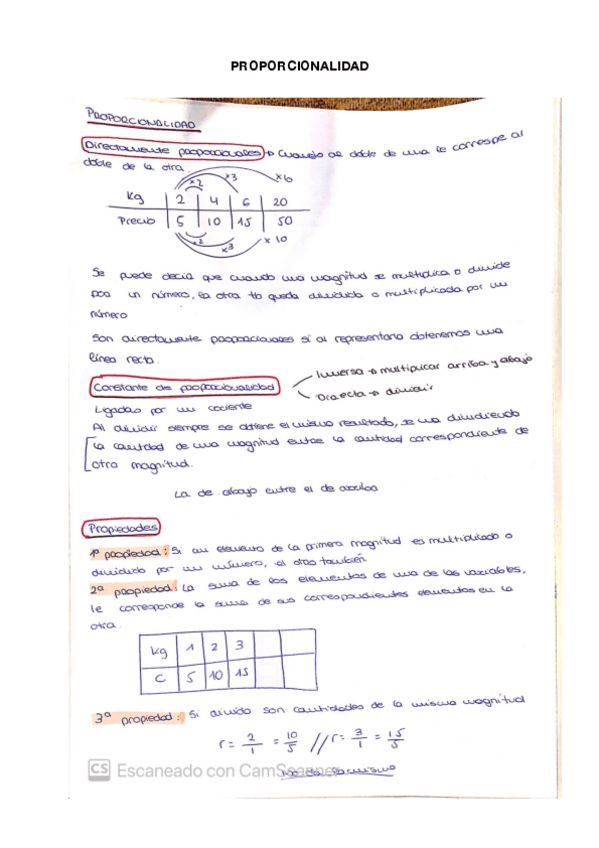 PROPORCIONALIDAD
PROPORCIONALIDAD
Directamente proporcionales → Cuando al doble de una le corresponde al
doble de la otra.
x2 x3 x10
Kg 2 4 6 20
Precio 5 10 15 50
x2 x3 x 10
Se puede decir que cuando una magnitud se multiplica o divide
por un número, la otra tb queda dividida o multiplicada por un
número
Son directamente proporcionales si al representarlo obtenemos una
línea recta.
Constante de proporcionalidad
Inversa → multiplicar arriba y abajo
Directa → dividir
Ligadas por un cociente
Al dividir siempre se obtiene el mismo resultado, se va dividiendo
la cantidad de una magnitud entre la cantidad correspondiente de
otra magnitud.
La de abajo entre el de arriba
Propiedades
1ª propiedad: Si un elemento de la primera magnitud es multiplicado o
dividido por un número, el otro también
2ª propiedad: La suma de los elementos de una de las variables,
le corresponde la suma de sus correspondientes elementos en la
otra.
Kg 1 2 3
C 5 10 15
3ª propiedad: Si divido son cantidades de la misma magnitud
r = 2/1 = 10/5 // r = 3/1 = 15/5
CS Escaneado con CamScanner